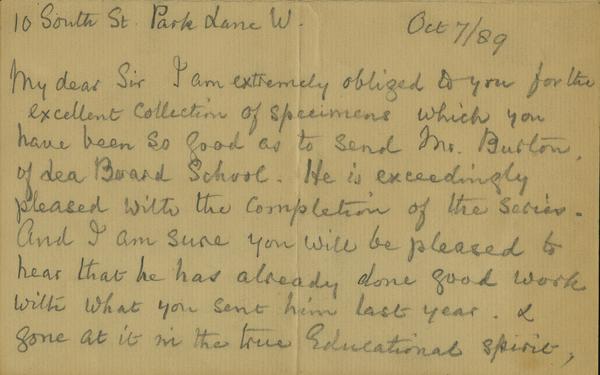 10 South St. Park Lane W.
Oct 7/89
My dear Sir I am extremely obliged to you for the
excellent collection of specimens which you
have been so good as to send Mr. Burton,
of Lea Board School. He is exceedingly
pleased with the completion of the series.
And I am sure you will be pleased to
hear that he has already done good work
with what you sent him last year. &
gone at it in the true Educational spirit,